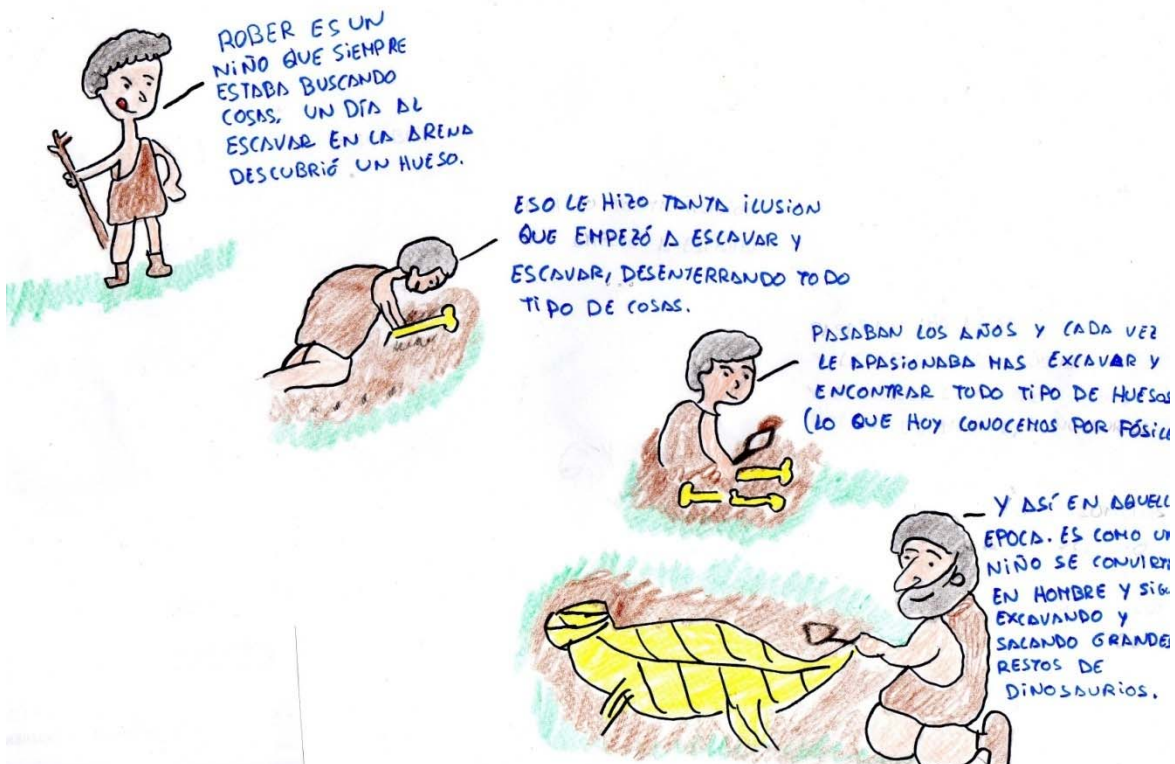 ROBER ES UN
NIÑO QUE SIEMPRE
ESTABA BUSCANDO
COSAS, UN DÍA AL
ESCAVAR EN LA ARENA
DESCUBRIÓ UN HUESO.
ESO LE HIZO TANTA ILUSION
QUE EMPEZÓ A ESCAVAR Y
ESCAVAR, DESENTERRANDO TODO
TIPO DE COSAS.
PASABAN LOS AÑOS Y CADA VEZ
LE APASIONABA MAS EXCAVAR Y
ENCONTRAR TODO TIPO DE HUESOS
(LO QUE HOY CONOCEMOS POR
Y ASÍ EN
EPOCA. ES COMO UN
NIÑO SE
EN HOMBRE Y
EXCAVANDO Y
SACANDO GRANDES
RESTOS DE
DINOSAURIOS.